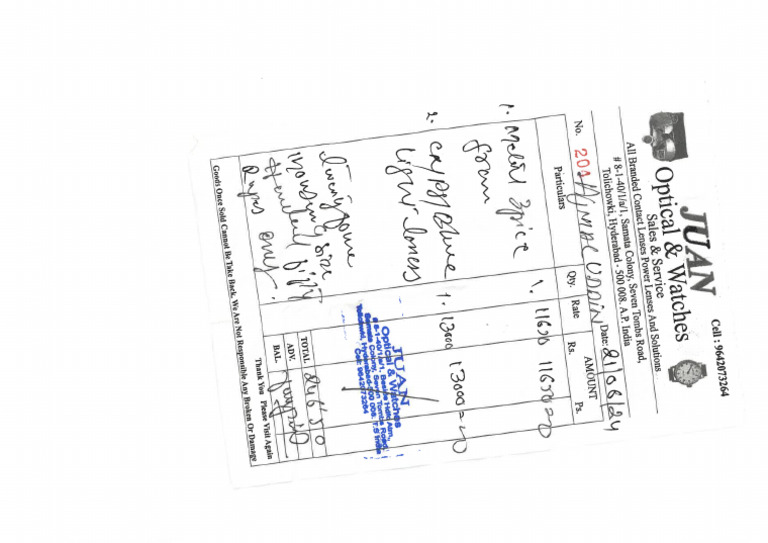 Cell : 9642073264
JUAN
Optical & Watches
Sales & Service
All Branded Contact Lenses Power Lenses And Solutions
# 8-1-40/1/a/1, Samata Colony, Seven Tombs Road,
Tolichowki, Hyderabad - 500 008. A.P. India
No. 201 Date: 21/06/24
Particulars Qty. Rate AMOUNT
Rs. Ps.
1. Metal 3 pice 1. 11650 11650=00
fram
2. Cryzy Blue 1. 13000 13000=00
Light lenses
Twenty foure
thousand six
Hundred fifty
Rupes only.
JUAN
Optical & Watches
# 8-1-40/1/a/1, Beside Hotel
Samata Colony, Seven Tombs Road,
Tolichowki, Hyderabad-500 008. T.S India
Cell: 9642073264
TOTAL 24650
ADV.
BAL.
Thank You Please Visit Again
Goods Once Sold Cannot Be Take Back, We Are Not Responsible Any Broken Or Damage